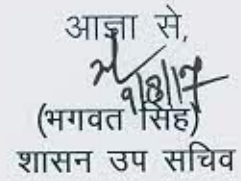 आज्ञा से,
9/8/17
(भगवत सिंह)
शासन उप सचिव